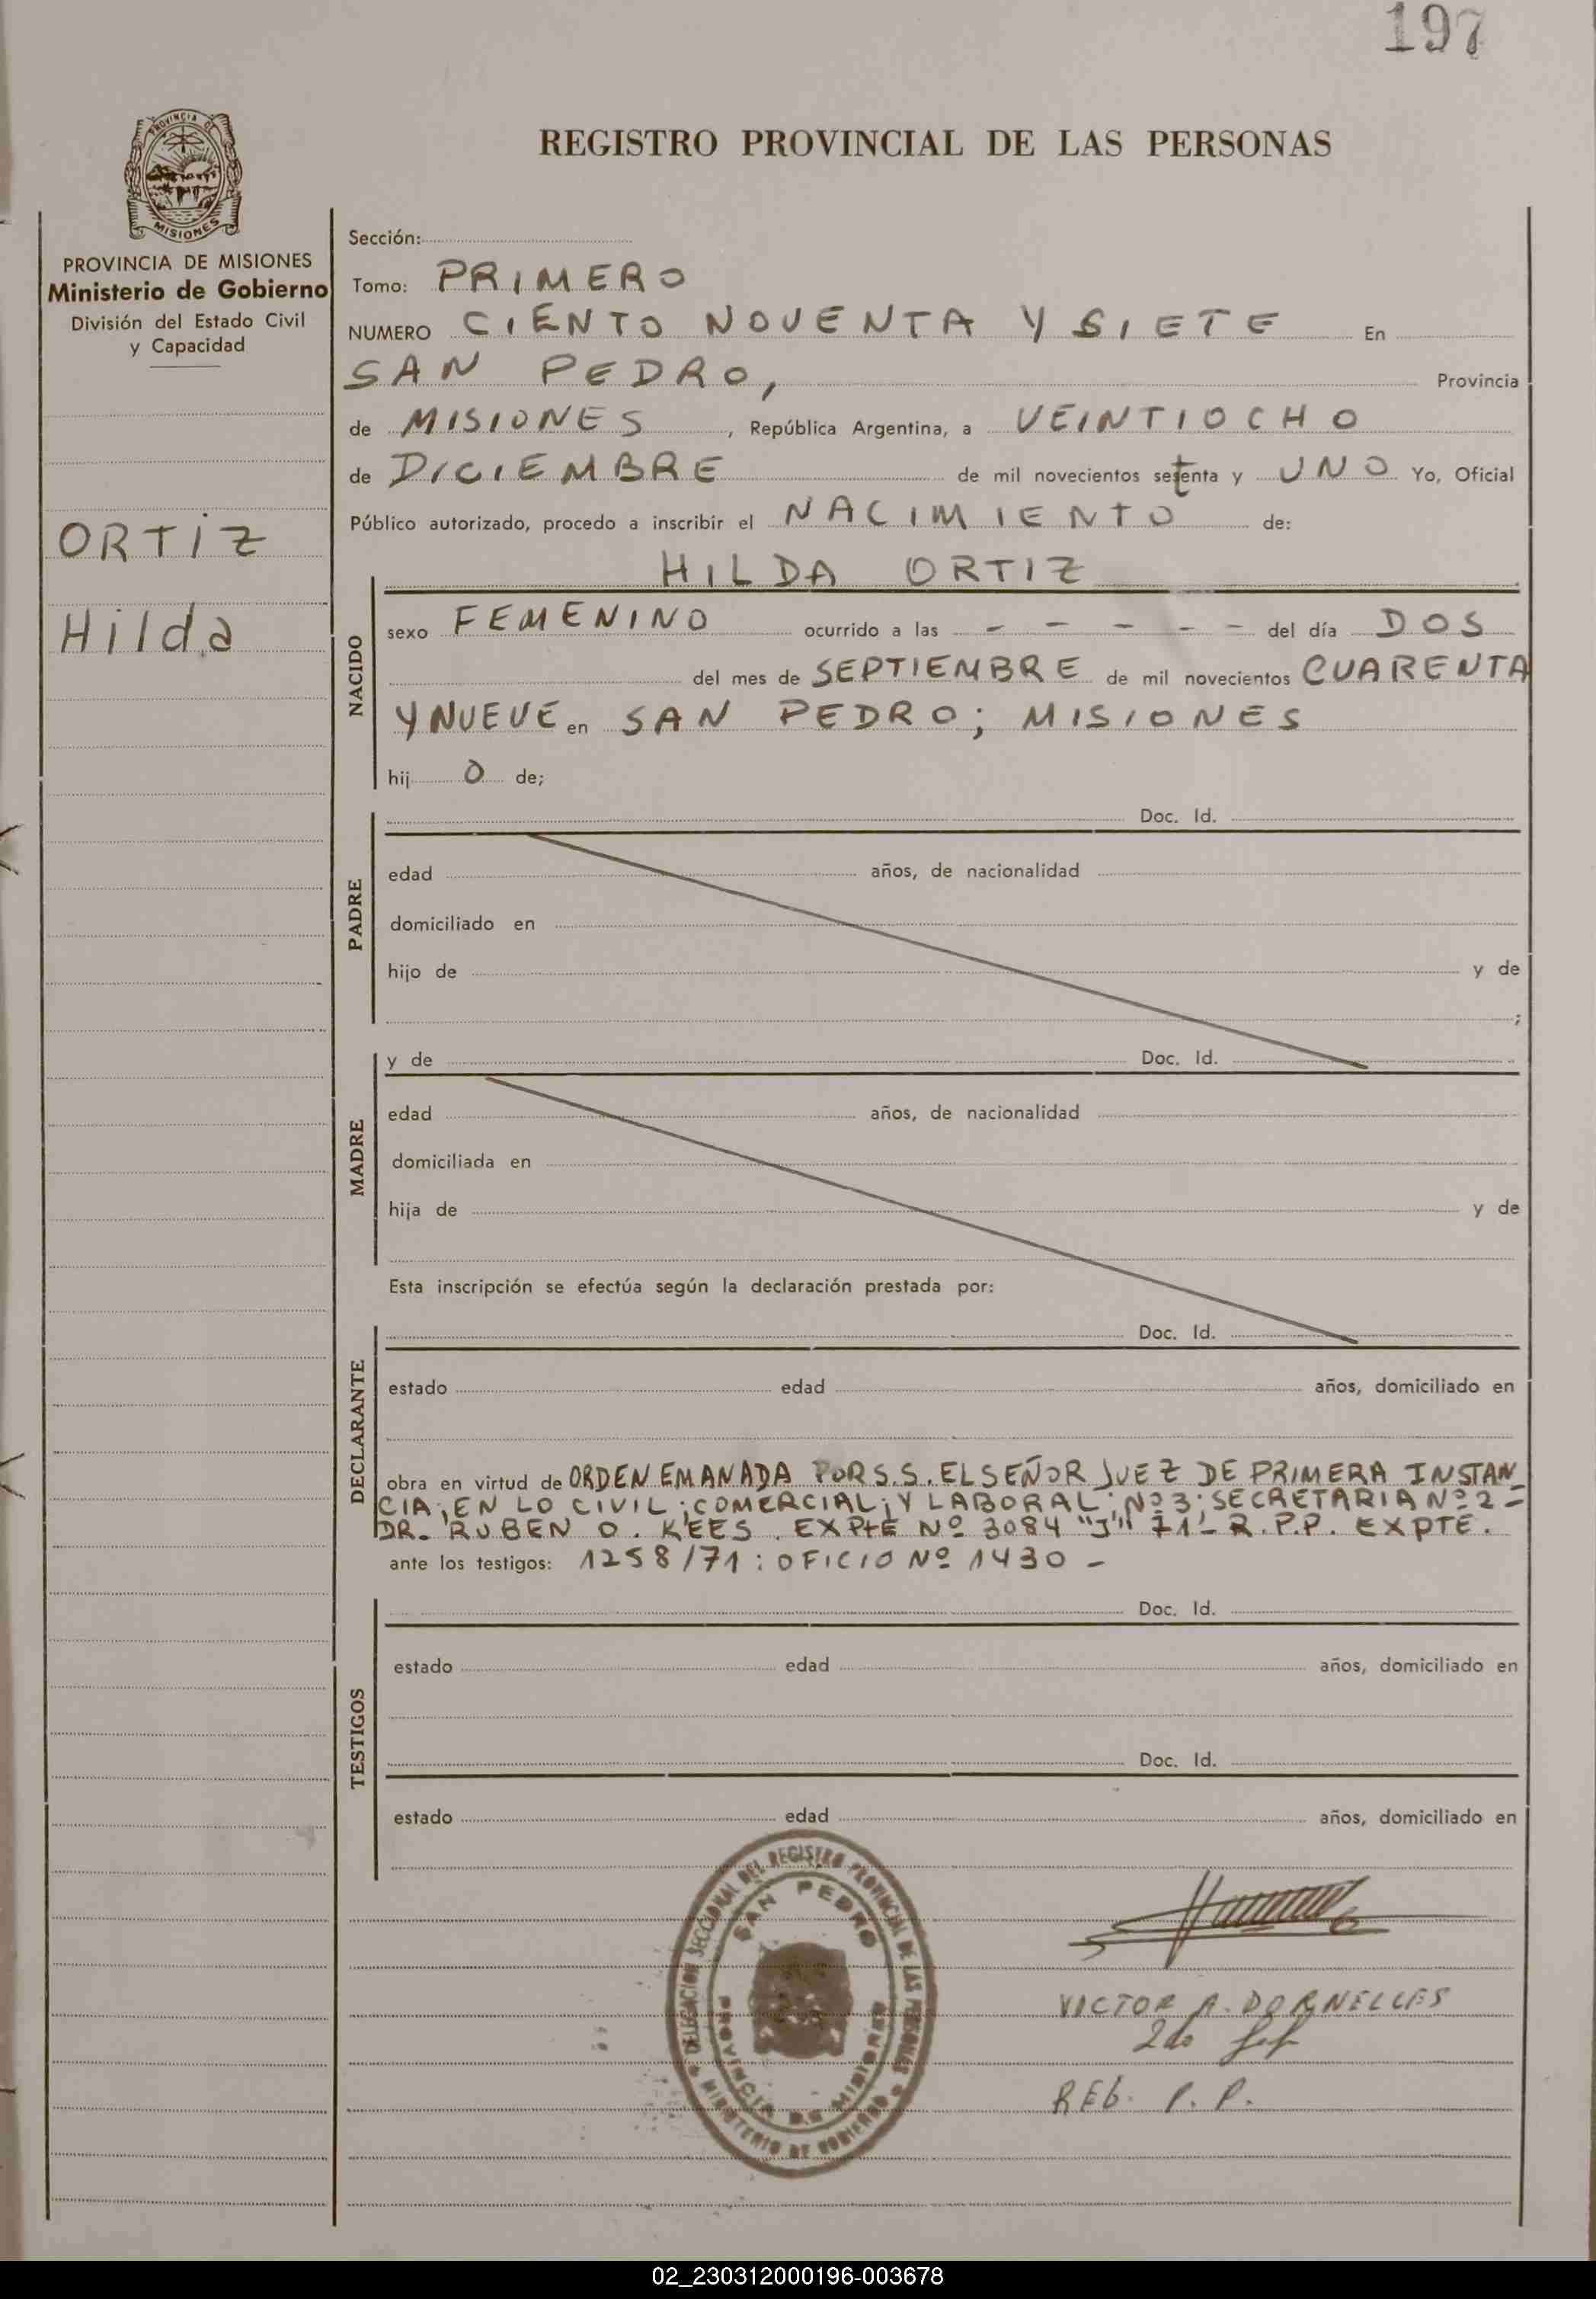 197
PROVINCIA DE
MISIONES
REGISTRO PROVINCIAL DE LAS PERSONAS
PROVINCIA DE MISIONES
Ministerio de Gobierno
División del Estado Civil
y Capacidad
ORTIZ
Hilda
Sección:
Tomo: PRIMERO
NUMERO CIENTO NOVENTA Y SIETE En
SAN PEDRO, Provincia
de MISIONES, República Argentina, a VEINTIOCHO
de DICIEMBRE de mil novecientos setenta y UNO Yo, Oficial
Público autorizado, procedo a inscribir el NACIMIENTO de:
HILDA ORTIZ
NACIDO
sexo FEMENINO ocurrido a las - - - - - del día DOS
del mes de SEPTIEMBRE de mil novecientos CUARENTA
Y NUEVE en SAN PEDRO; MISIONES
hij O de;
PADRE
Doc. Id.
edad años, de nacionalidad
domiciliado en
hijo de y de
;
MADRE
y de Doc. Id.
edad años, de nacionalidad
domiciliada en
hija de y de
Esta inscripción se efectúa según la declaración prestada por:
DECLARANTE
Doc. Id.
estado edad años, domiciliado en
obra en virtud de ORDEN EMANADA POR S.S. EL SEÑOR JUEZ DE PRIMERA INSTAN_
CIA; EN LO CIVIL; COMERCIAL; Y LABORAL; Nº 3; SECRETARIA Nº 2 -
DR. RUBEN O. KEES. EXPTE Nº 3084 "J" 71- R.P.P. EXPTE.
ante los testigos: 1258/71: OFICIO Nº 1430 -
TESTIGOS
Doc. Id.
estado edad años, domiciliado en
Doc. Id.
estado edad años, domiciliado en
DELEGACION SECCIONAL DEL REGISTRO PROVINCIAL DE LAS PERSONAS
MINISTERIO DE GOBIERNO
SAN PEDRO
PROVINCIA DE MISIONES
VICTOR A. DORNELLES
2do Jef
REG. P. P.
02_230312000196-003678